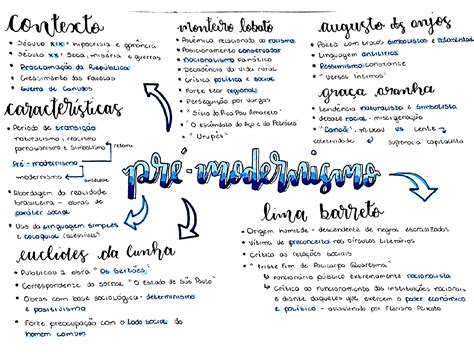 contexto
• Século XIX: hipocrisia e ganância
• Século XX: seca, miséria e guerras
• Proclamação da República
• Crescimento das favelas
• Guerra de Canudos
características
• Período de transição
naturalismo, realismo
parnasianismo e simbolismo
Pré-modernismo
modernismo
• Abordagem da realidade
brasileira - obras de
caráter social
• Uso da linguagem simples
e coloquial (acessível)
euclides da cunha
• Publicou a obra "Os Sertões"
• Correspondente do jornal "O Estado de São Paulo"
• Obras com base sociológica - determinismo
e positivismo
• Forte preocupação com o lado social do
homem comum
monteiro lobato
• Polêmica relacionada ao racismo
• Posicionamento conservador
• Nacionalismo fanático
• Decadência da vida rural
• Crítica política e social
• Forte teor regional
• Perseguição por Vargas
• "Sítio do Pica Pau Amarelo"
• "O escândalo do Aço e do Petróleo"
• "Urupês"
pré-modernismo
augusto dos anjos
• Poeta com traços simbolistas e
• Linguagem
• Pessimismo constante
• "Versos Íntimos"
graça aranha
• Tendência naturalista e simbolista
• debate racial - miscigenação
• "Canaã":
supremacia
lima barreto
• Origem humilde - descendente de negros escravizados
• Vítima de preconceito nos círculos literários
• Crítica às relações sociais
• "Triste Fim de Policarpo Quaresma"
funcionário público extremamente nacionalista
Crítica ao funcionamento das instituições nacionais
e diante daqueles que exercem o poder econômico
e político - assassinado por Floriano Peixoto